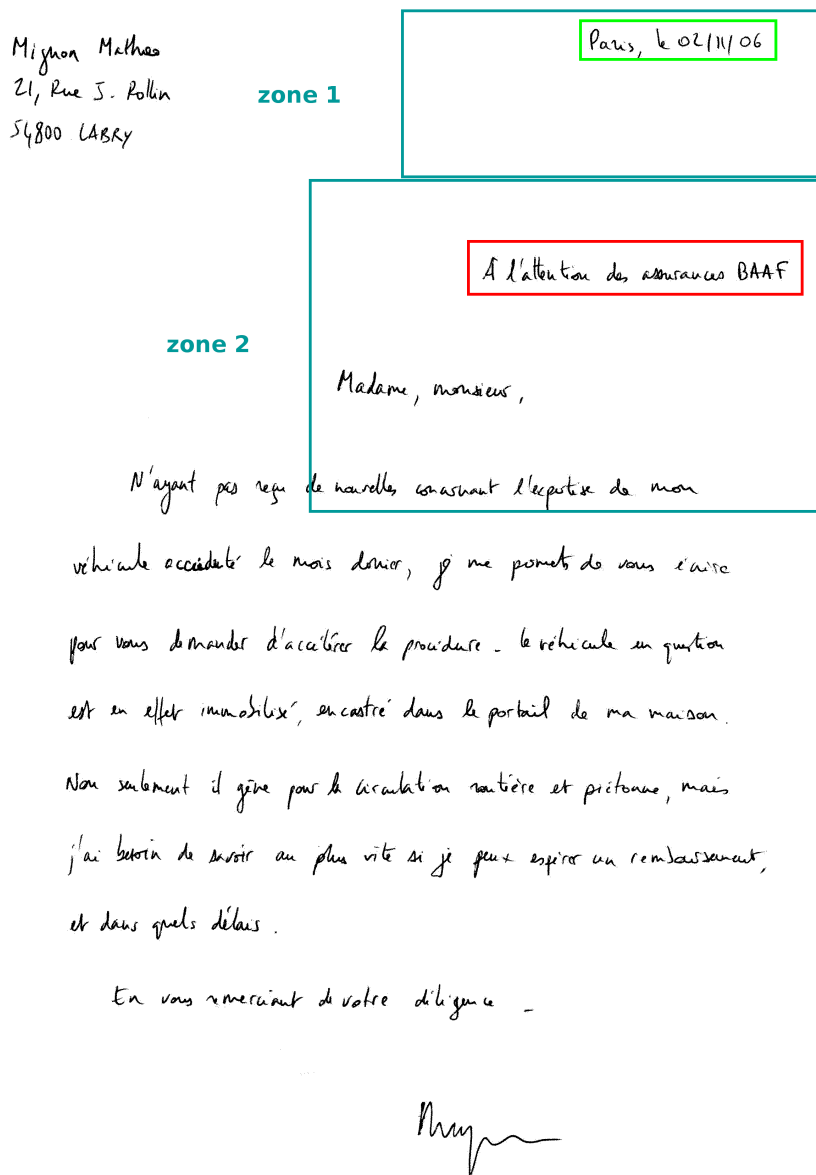 Mignon Matheo
21, Rue J. Rollin
54800 LABRY
zone 1
Paris, le 02/11/06
À l'attention des assurances BAAF
zone 2
Madame, monsieur,
N'ayant pas reçu de nouvelles concernant l'expertise de mon
véhicule accidenté le mois dernier, je me permets de vous écrire
pour vous demander d'accélérer la procédure. le véhicule en question
est en effet immobilisé, encastré dans le portail de ma maison.
Non seulement il gêne pour la circulation routière et piétonne, mais
j'ai besoin de savoir au plus vite si je peux espérer un remboursement,
et dans quels délais.
En vous remerciant de votre diligence -